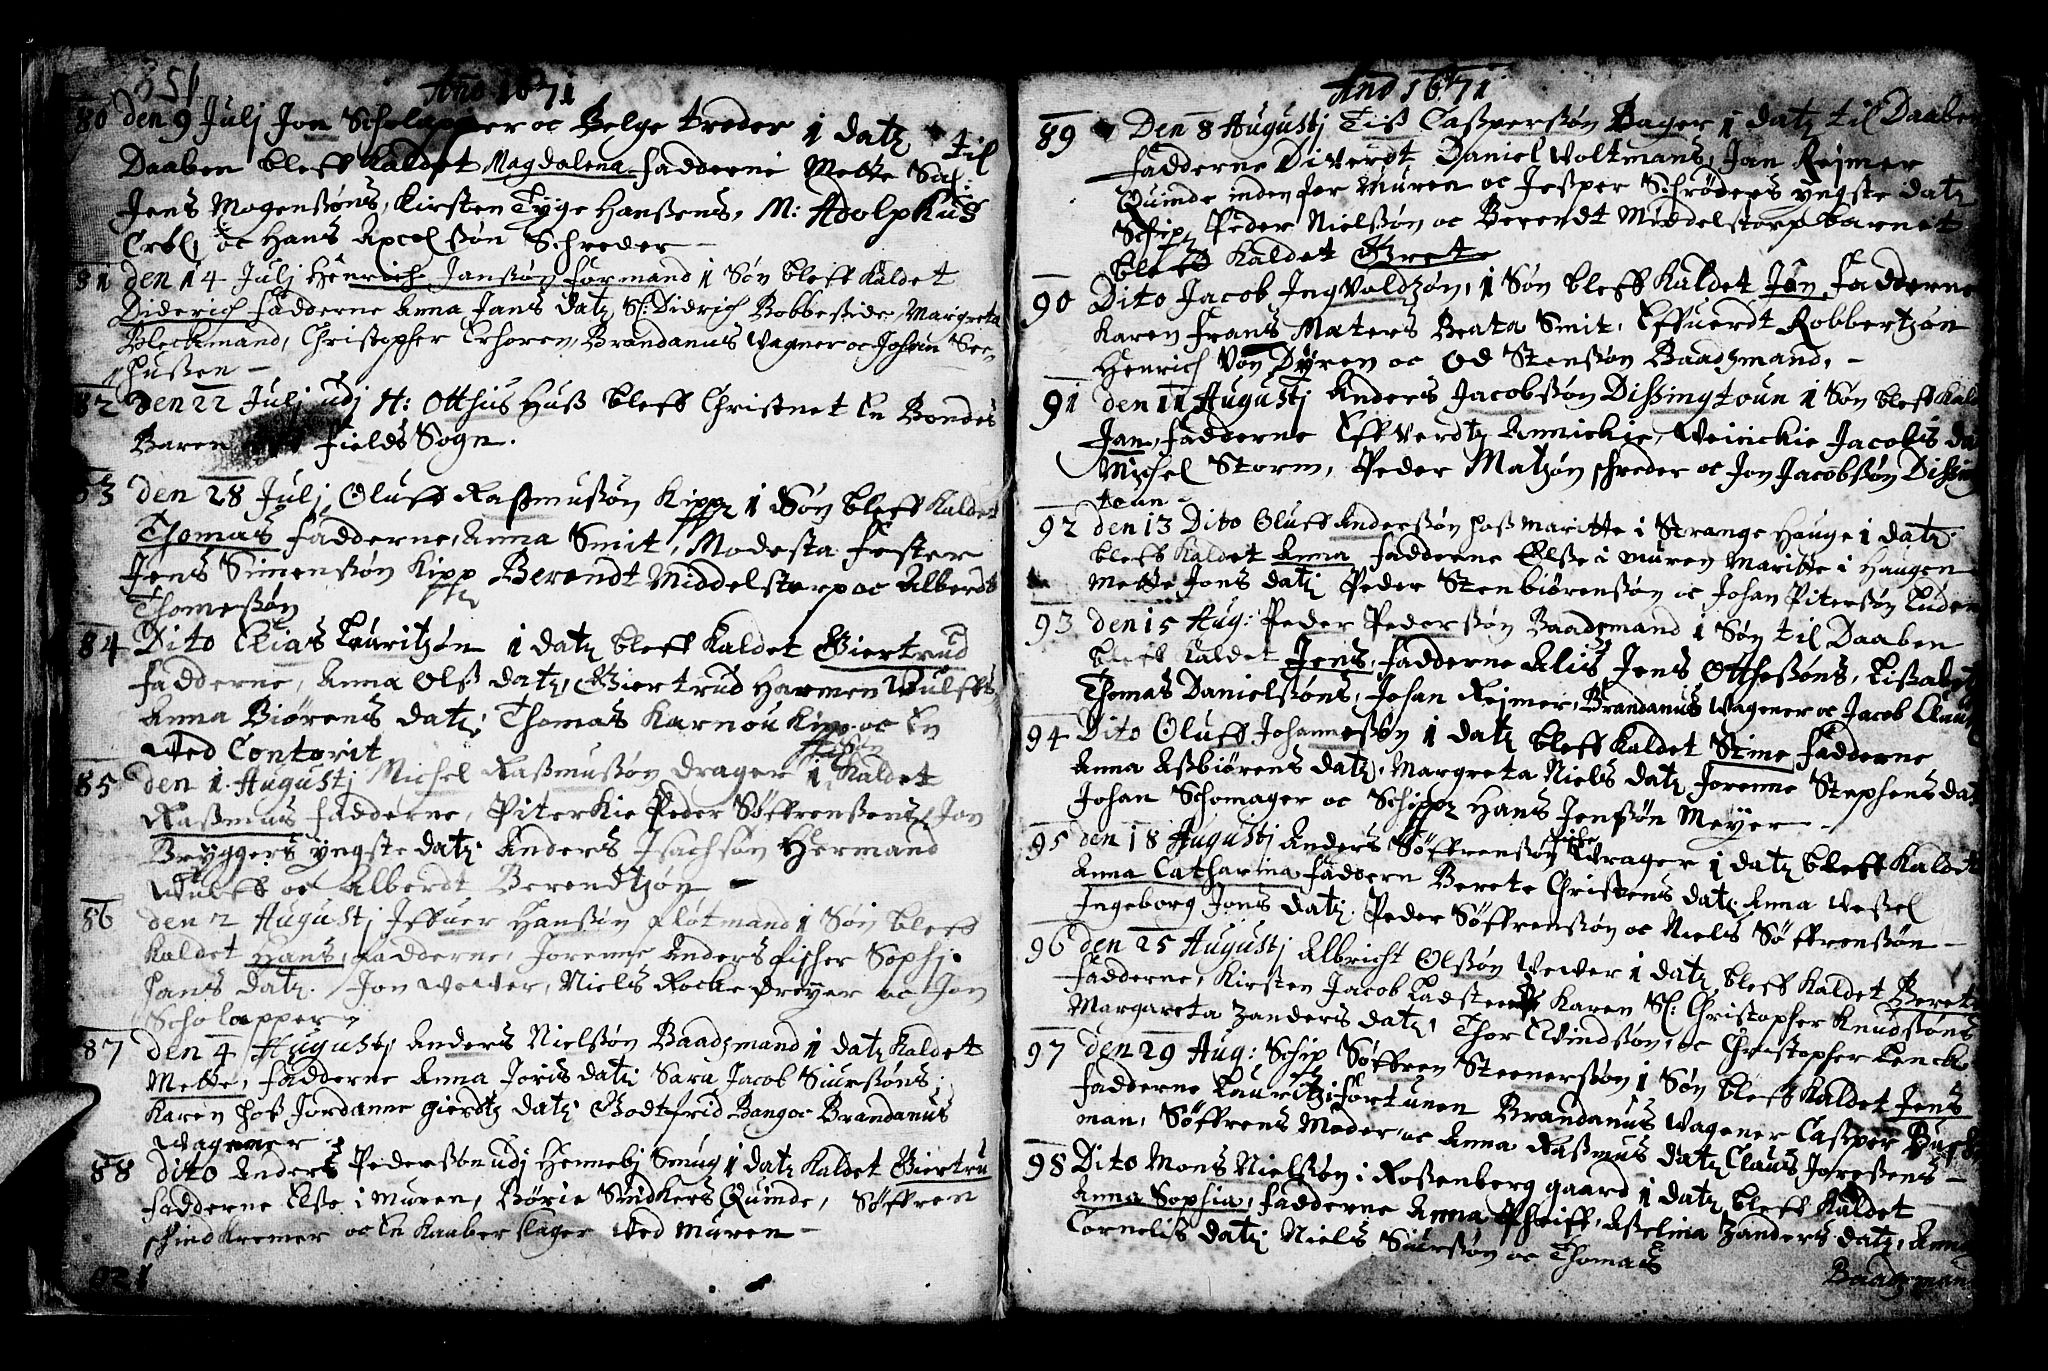 351
Año 1671
80 den 9 Julj Jon Scholapper oc Belge treder 1 datz til
Daaben bleff Kaldet Magdalena fadderne Mette Sal:
Jens Mogenssøns, Kirsten Tyge Hanssens, M: Adolphus
oc Hans Axcelssøn Schreder —
81 den 14 Julj Henrich Janssøn Formand 1 Søn bleff Kaldet
Diderich fadderne Anna Jans datz Sl: Didrich Margreta
Bleckmand, Christopher Erhoren, Brandanus Wagner oc Johan See
hussen —
82 den 22 Julj udj H: Otthis Huß bleff Christnet En Bondes
Baren fields Sogn.
83 den 28 Julj Oluff Rassmussøn Kipp 1 Søn bleff Kaldet
Thomas fadderne, Anna Smit, Modesta Fester
Jens Simenssøn Kipp Berendt Middelstorp oc Alberdt
Thomessøn
84 Dito Elias Lauritzøn 1 datz bleff Kaldet Giertrud
fadderne, Anna Olß datz, Giertrud Harmen Wulffs
Anna Biørens datz, Thomas Karnou Kipp oc En
Wed Contorit
85 den 1. Augustj Michel Rassmussøn drager 1 Kaldet
Rassmus fadderne, Piterkie Peder Søffrenssens, Jon
Bryggers yngste datz Anders Isachsøn Hermand
Wulff oc Alberdt Berendtzøn —
86 den 2 Augustj Iffuer Hanssøn fløtmand 1 Søn bleff
Kaldet Hans, fadderne, Jorenne Anders fischer Sophj
Hans datz. Jon Wewer, Niels Rocke dreyer oc Jon
Scholapper
87 den 4 Augustj Anders Nielssøn Baadzmand 1 datz Kaldet
Mette, fadderne Anna Joris datz Sara Jacob Siurssøns,
Karen hoß Jordanne gierdtz datz Godtfrid Bang oc Brandanus
Wagener
88 dito Anders Pederssøn udj Hennebj Smug 1 datz Kaldet Giertru
fadderne Else i muren, Børie Snidkers Quinde, Søffren
schindKremer oc En Kaaberslager Wed muren —
Ano 1671
89 Den 8 Augustj Tiß Casperssøn Bager 1 datz til Daaben
fadderne Diverdt Daniel Woltmans, Jan Rejmer
Quinde inden for Muren oc Jesper Schrøders yngste datz
Schip Peder Nielssøn oc Berendt Middelstorp barnet
bleff Kaldet Gret
90 Dito Jacob Ingvoldzøn, 1 Søn bleff Kaldet Jan fadderne
Karen Frans Maters Beata Smit, Effuerdt Robbertzøn
Henrich Von Dyren oc Od Stenssøn Baadzmand, —
91 den 11 Augustj Anders Jacobssøn Dissingtoun 1 Søn bleff Kald
Jan, fadderne Effverdtz Annickie, Weinckie Jacobs da
Michel Storm, Peder Matzøn schreder oc Jon Jacobssøn Dissing
toun —
92 den 13 Dito Oluff Anderssøn hoß maritte i Strange Hauge 1 datz
bleff Kaldet Anna fadderne Else i muren Maritte i Haugen
Mette Jons datz Peder Stenbiørenssøn oc Johan Piterssøn Luder
93 den 15 Aug: Peder Pederssøn Baadzmand 1 Søn til Daaben
bleff Kaldet Jens, fadderne Alis Jens Otthessøns, Lisabet
Thomas Danielssøns, Johan Rejmer, Brandanus Wagener oc Jacob Clau
94 Dito Oluff Johannessøn 1 datz bleff Kaldet Stine fadderne
Anna Assbiørens datz, Margreta Niels datz Jorenne Stephens dat
Johan Schomager oc Schipp Hans Jenssøn Meyer —
95 den 18 Augustj Anders Søffrenssøn drager 1 datz bleff Kaldet
Anna Catharina faddern Berete Christens datz Anna Wessel
Ingeborg Jons datz. Peder Søffrenssøn oc Niels Søffrenssøn —
96 den 25 Augustj Albricht Olssøn Wewer 1 datz, bleff Kaldet Beret
fadderne, Kirsten Jacob Karen Sl: Christopher Knudssøns
Margareta Zanders datz, Thor Eivindssøn, oc Christopher Lencke
97 den 29 Aug: Schip Søffren Steenerssøn 1 Søn bleff Kaldet Jens
fadderne Lauritz Fortunen Brandanus Wagener Casper
man, Søffrens Moder, oc Anna Rassmus datz Claus Joressens —
98 Dito Mons Nielssøn i Rossenberg gaard 1 datz bleff Kaldet
Anna Sophia, fadderne Anna Schriff, Asselina Zanders datz, Anna
Cornelis datz Niels Siurssøn oc Thomas
Baadzman